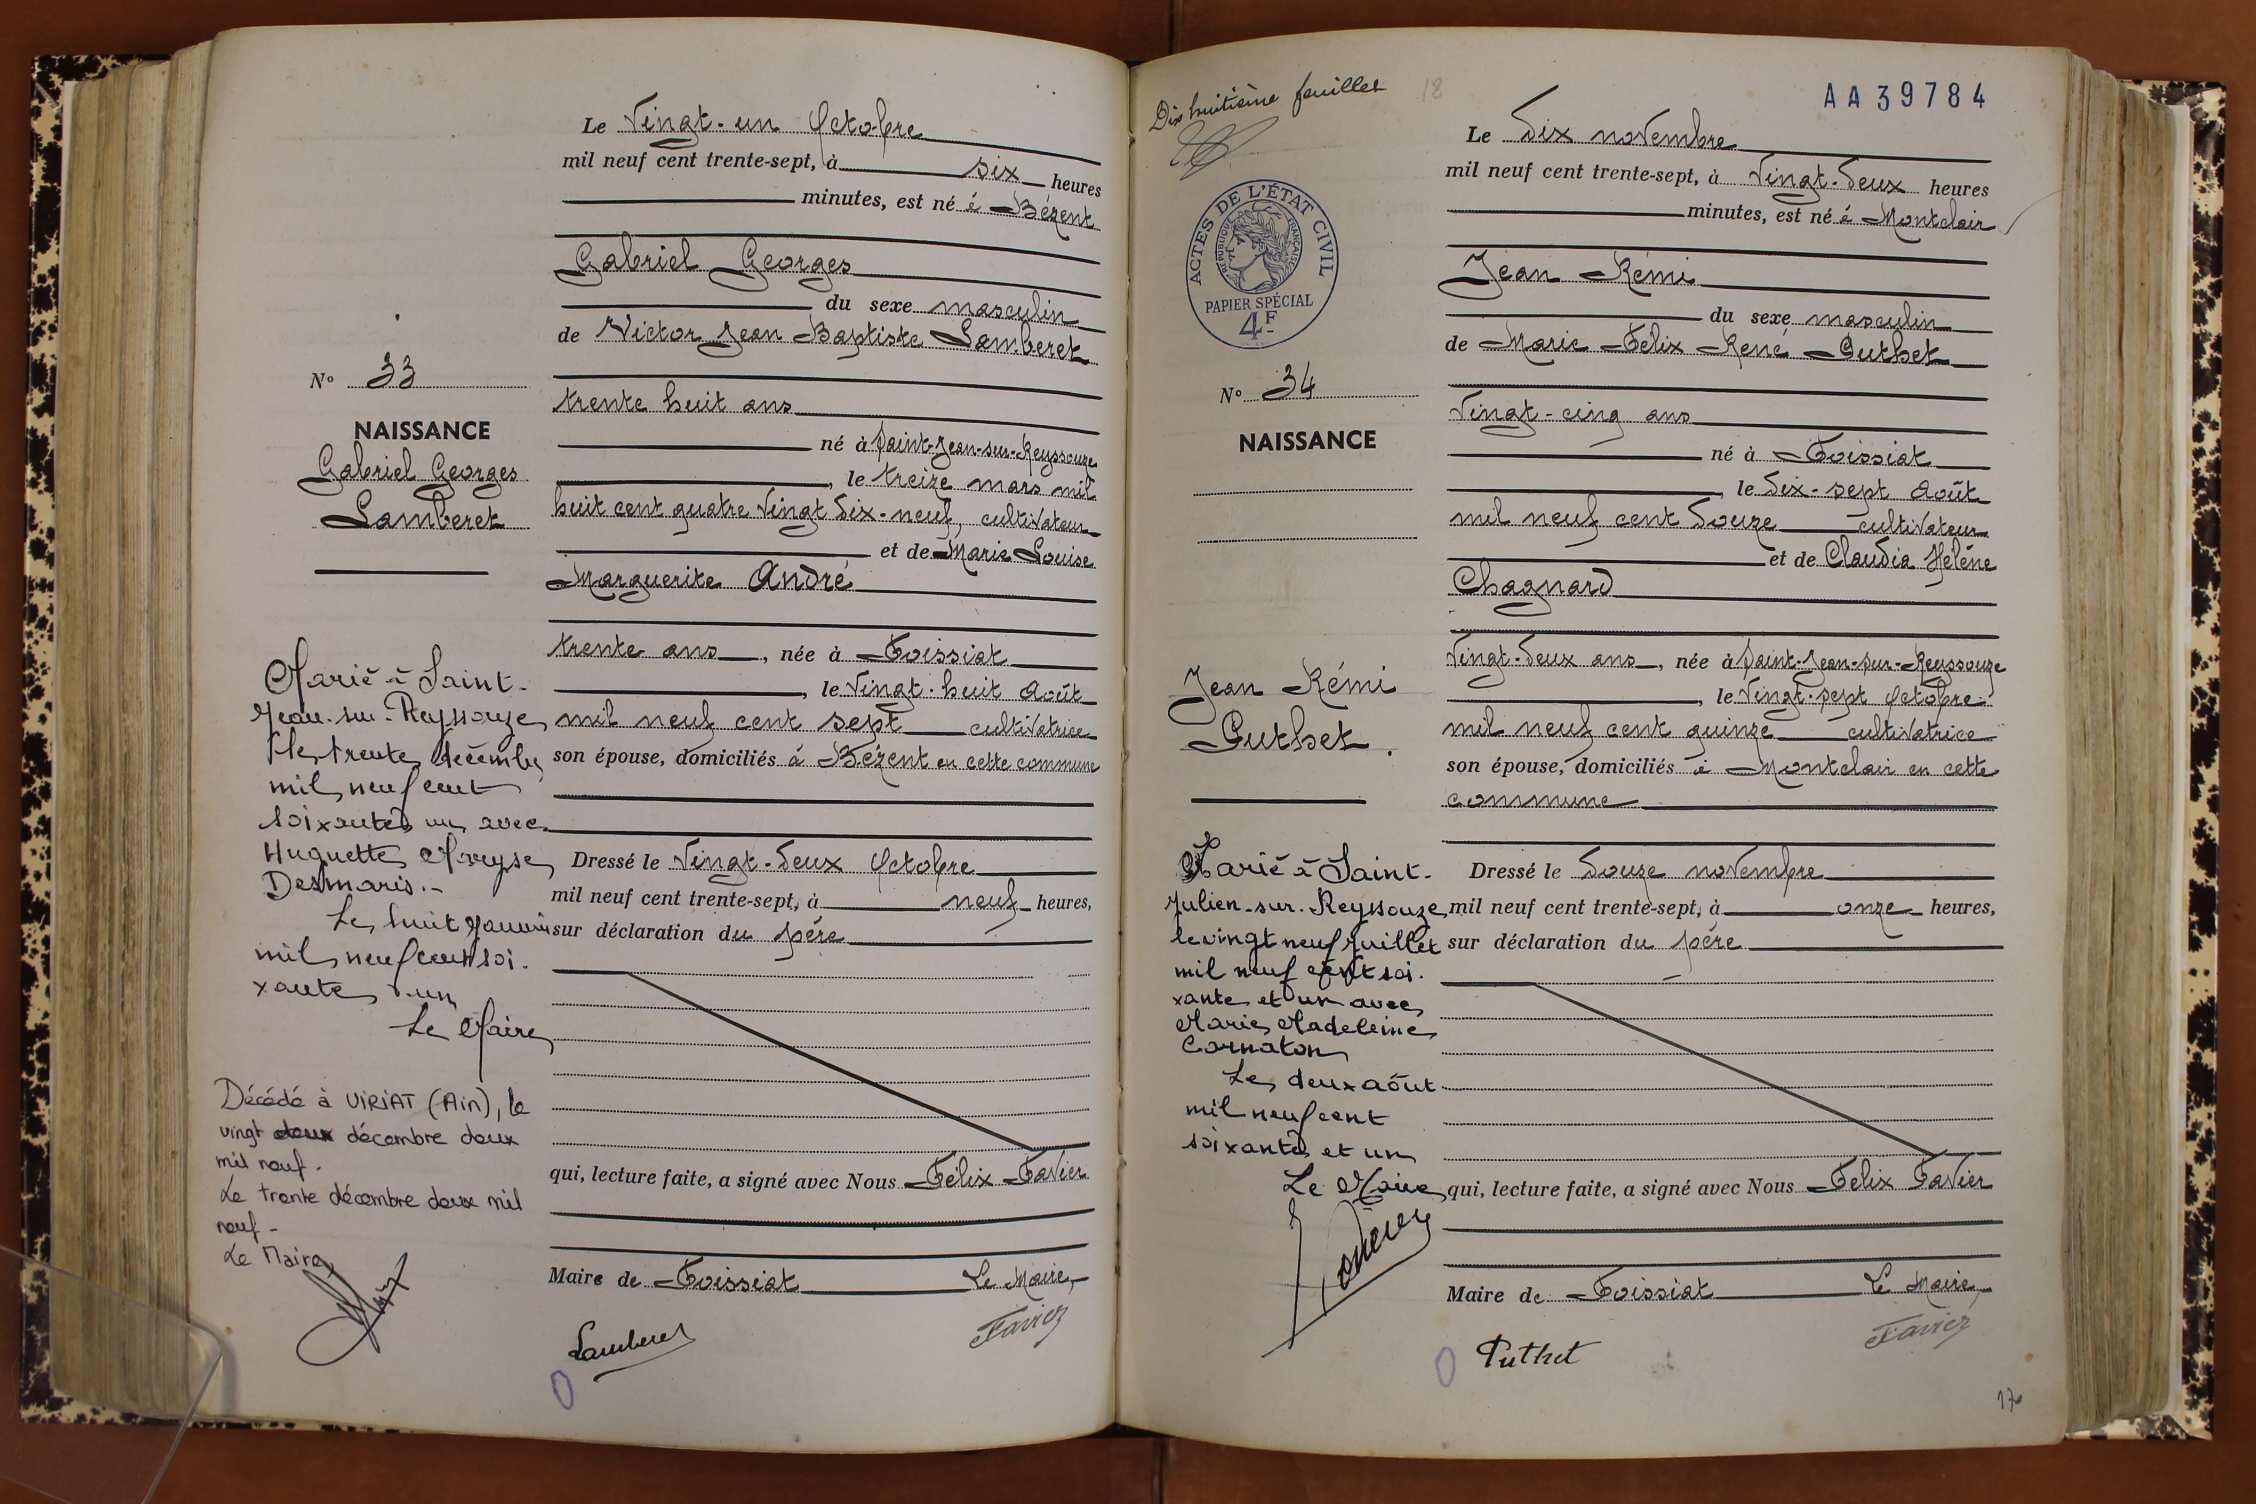 Le Vingt-un Octobre
mil neuf cent trente-sept, à six heures
minutes, est né à Bézent
Gabriel Georges
du sexe masculin
de Victor Jean Baptiste Lamberet
N° 33
trente huit ans
NAISSANCE
né à Saint-Jean-sur-Reyssouze
Gabriel Georges
Lamberet
, le treize mars mil
huit cent quatre Vingt Dix-neuf, cultivateur
et de Marie Louise
Marguerite André
trente ans, née à Foissiat
, le Vingt-huit Août
mil neuf cent sept cultivatrice
son épouse, domiciliés à Bézent en cette commune
Dressé le Vingt-Deux Octobre
mil neuf cent trente-sept, à neuf heures,
sur déclaration du père
qui, lecture faite, a signé avec Nous Félix Favier
Maire de Foissiat Le Maire,
Lamberet
Favier
Marié à Saint-
Jean-sur-Reyssouze
le trente décembre
mil neuf cent
soixante un avec
Huguette Maryse
Desmaris.-
Le huit Janvier
mil neuf cent soi-
xante
Le Maire
Décédé à VIRIAT (Ain), le
vingt deux décembre deux
mil neuf.
Le trente décembre deux mil
neuf -
Le Maire
Dix huitième feuillet 18
AA39784
ACTES DE L'ÉTAT CIVIL
RÉPUBLIQUE FRANÇAISE
PAPIER SPÉCIAL
4F
Le Dix novembre
mil neuf cent trente-sept, à Vingt-Deux heures
minutes, est né à Montclair
Jean Rémi
du sexe masculin
de Marie Félix René Puthet
N° 34
Vingt-cinq ans
NAISSANCE
né à Foissiat
, le Dix-sept Août
mil neuf cent Douze cultivateur
et de Claudia Helène
Chagnard
Vingt-Deux ans, née à Saint-Jean-sur-Reyssouze
, le Vingt-sept Octobre
mil neuf cent quinze cultivatrice
son épouse, domiciliés à Montclair en cette
commune
Jean Rémi
Puthet.
Dressé le Douze novembre
mil neuf cent trente-sept, à onze heures,
sur déclaration du père
qui, lecture faite, a signé avec Nous Félix Favier
Maire de Foissiat Le Maire,
Puthet
Favier
Marié à Saint-
Julien-sur-Reyssouze
le vingt neuf juillet
mil neuf cent soi-
xante et un avec
Marie Madeleine
Cornaton
Le deux août
mil neuf cent
soixante et un
Le Maire
17